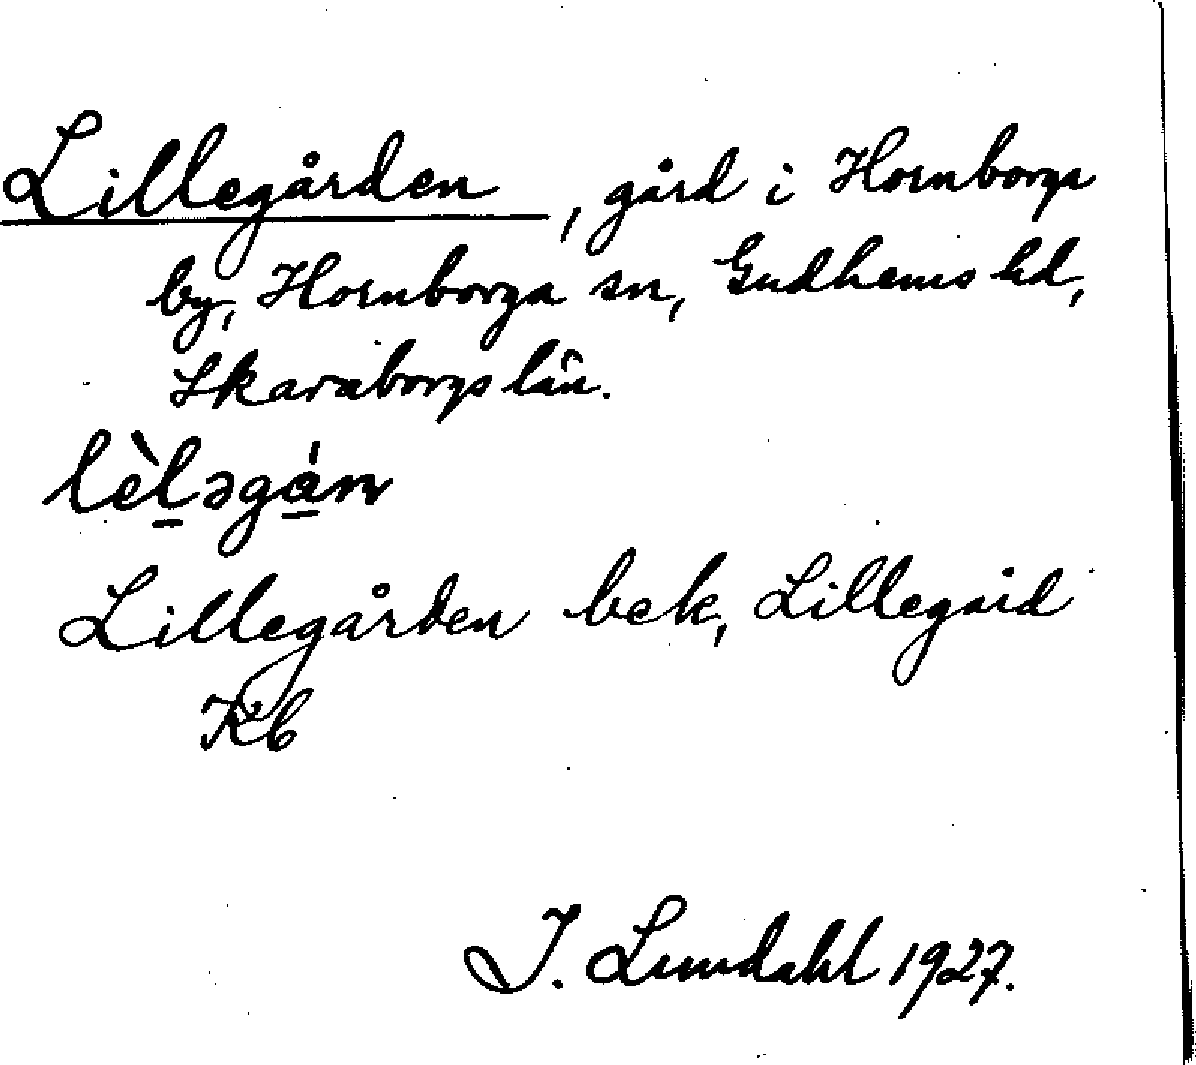 Lillegården, gård i Hornborga
by, Hornborga sn, Gudhems hd,
Skaraborgs län.
lèl̠əgá̠n
Lillegården bek, Lillegård
Kb
I. Lundahl 1927.